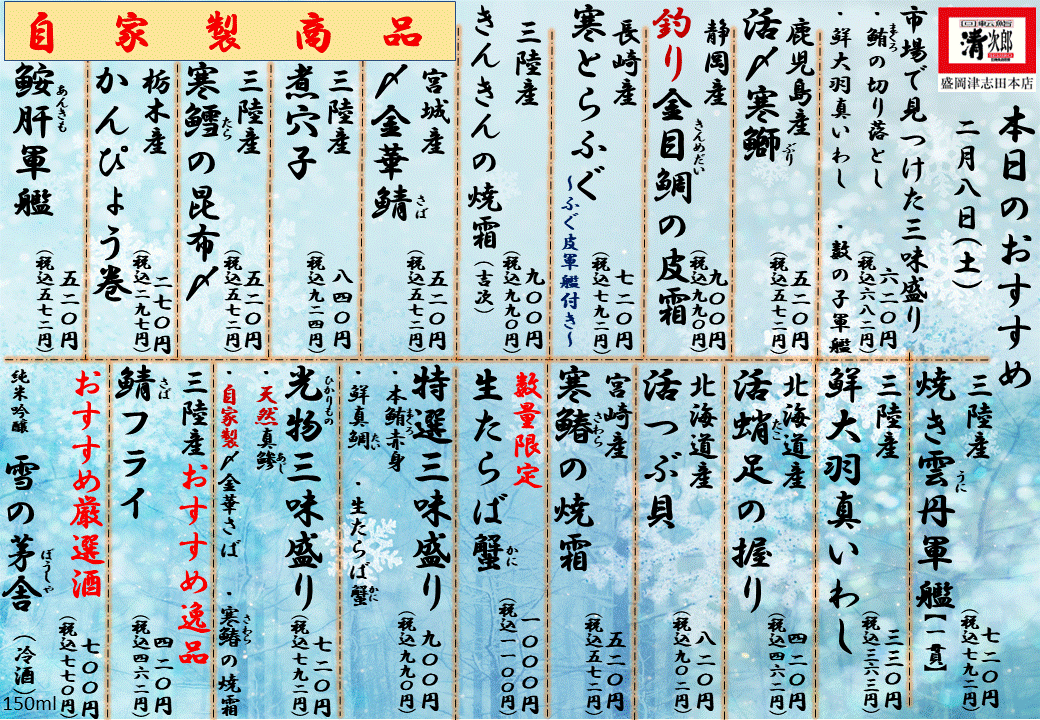 回転鮨
清次郎
盛岡津志田本店
本日のおすすめ
二月八日(土)
市場で見つけた三味盛り
・鮪の切り落とし
まぐろ
・鮮大羽真いわし
・数の子軍艦
六二〇円
(税込六八二円)
鹿児島産
活〆寒鰤
ぶり
五二〇円
(税込五七二円)
静岡産
釣り金目鯛の皮霜
きんめだい
九〇〇円
(税込九九〇円)
長崎産
寒とらふぐ
~ふぐ皮軍艦付き~
七二〇円
(税込七九二円)
三陸産
きんきんの焼霜
(吉次)
九〇〇円
(税込九九〇円)
自家製商品
宮城産
〆金華鯖
さば
五二〇円
(税込五七二円)
三陸産
煮穴子
八四〇円
(税込九二四円)
三陸産
寒鱈の昆布〆
たら
五二〇円
(税込五七二円)
栃木産
かんぴょう巻
二七〇円
(税込二九七円)
鮟肝軍艦
あんきも
五二〇円
(税込五七二円)
三陸産
焼き雲丹軍艦【一貫】
うに
七二〇円
(税込七九二円)
三陸産
鮮大羽真いわし
三三〇円
(税込三六三円)
北海道産
活蛸足の握り
たこ
四二〇円
(税込四六二円)
北海道産
活つぶ貝
八二〇円
(税込九〇二円)
宮崎産
寒鰆の焼霜
さわら
五二〇円
(税込五七二円)
数量限定
生たらば蟹
かに
一〇〇〇円
(税込一一〇〇円)
特選三味盛り
・本鮪赤身
まぐろ
・鮮真鯛
たい
・生たらば蟹
かに
九〇〇円
(税込九九〇円)
光物三味盛り
ひかりもの
・天然真鯵
あじ
・自家製〆金華さば
・寒鰆の焼霜
さわら
七二〇円
(税込七九二円)
おすすめ逸品
三陸産
鯖フライ
さば
四二〇円
(税込四六二円)
おすすめ厳選酒
純米吟醸 雪の茅舎
ぼうしゃ
(冷酒)
150ml
七〇〇円
(税込七七〇円)